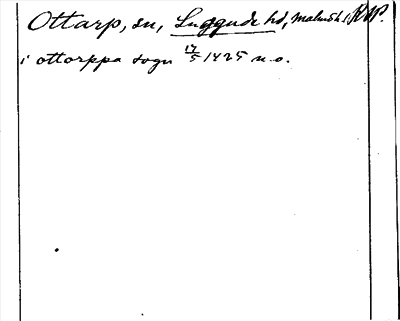 Ottarp, sn, Luggude hd, Malmöh. l. RAP.
i ottorppa sogn 17/5 1425 n.o.